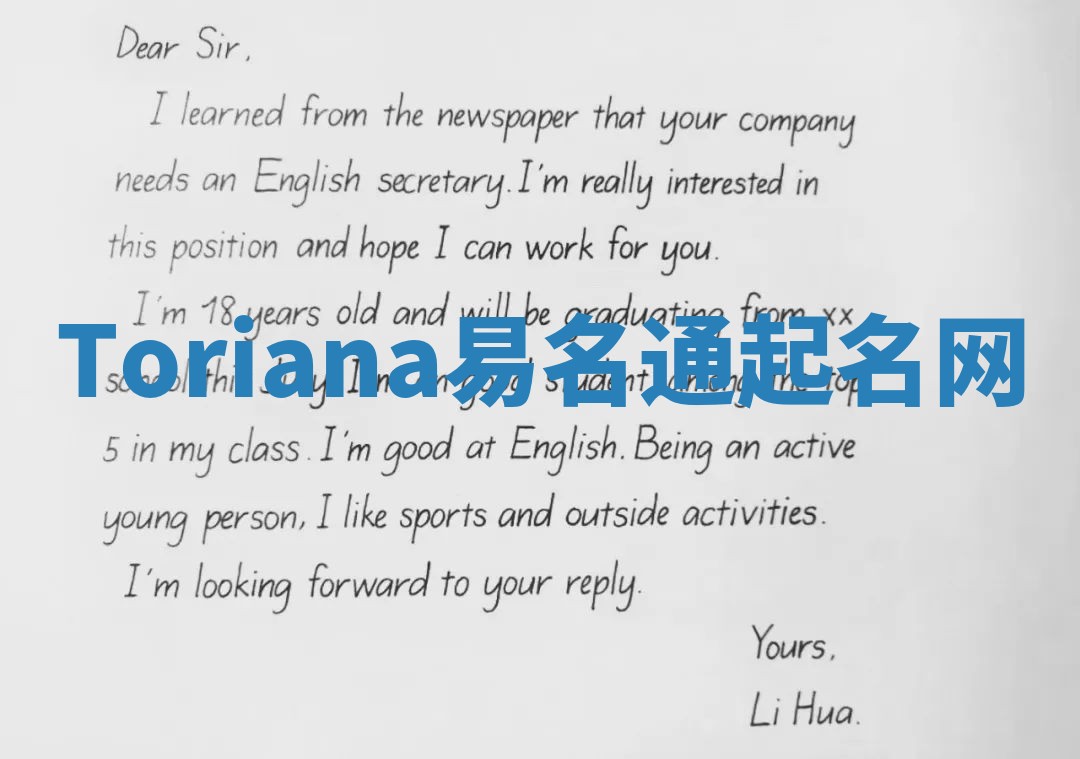 Dear Sir,
I learned from the newspaper that your company
needs an English secretary. I'm really interested in
this position and hope I can work for you.
I'm 18 years old and will be graduating from xx
Toriana易名通起名网
school this July. I'm student among the top
5 in my class. I'm good at English. Being an active
young person, I like sports and outside activities.
I'm looking forward to your reply.
Yours,
Li Hua.